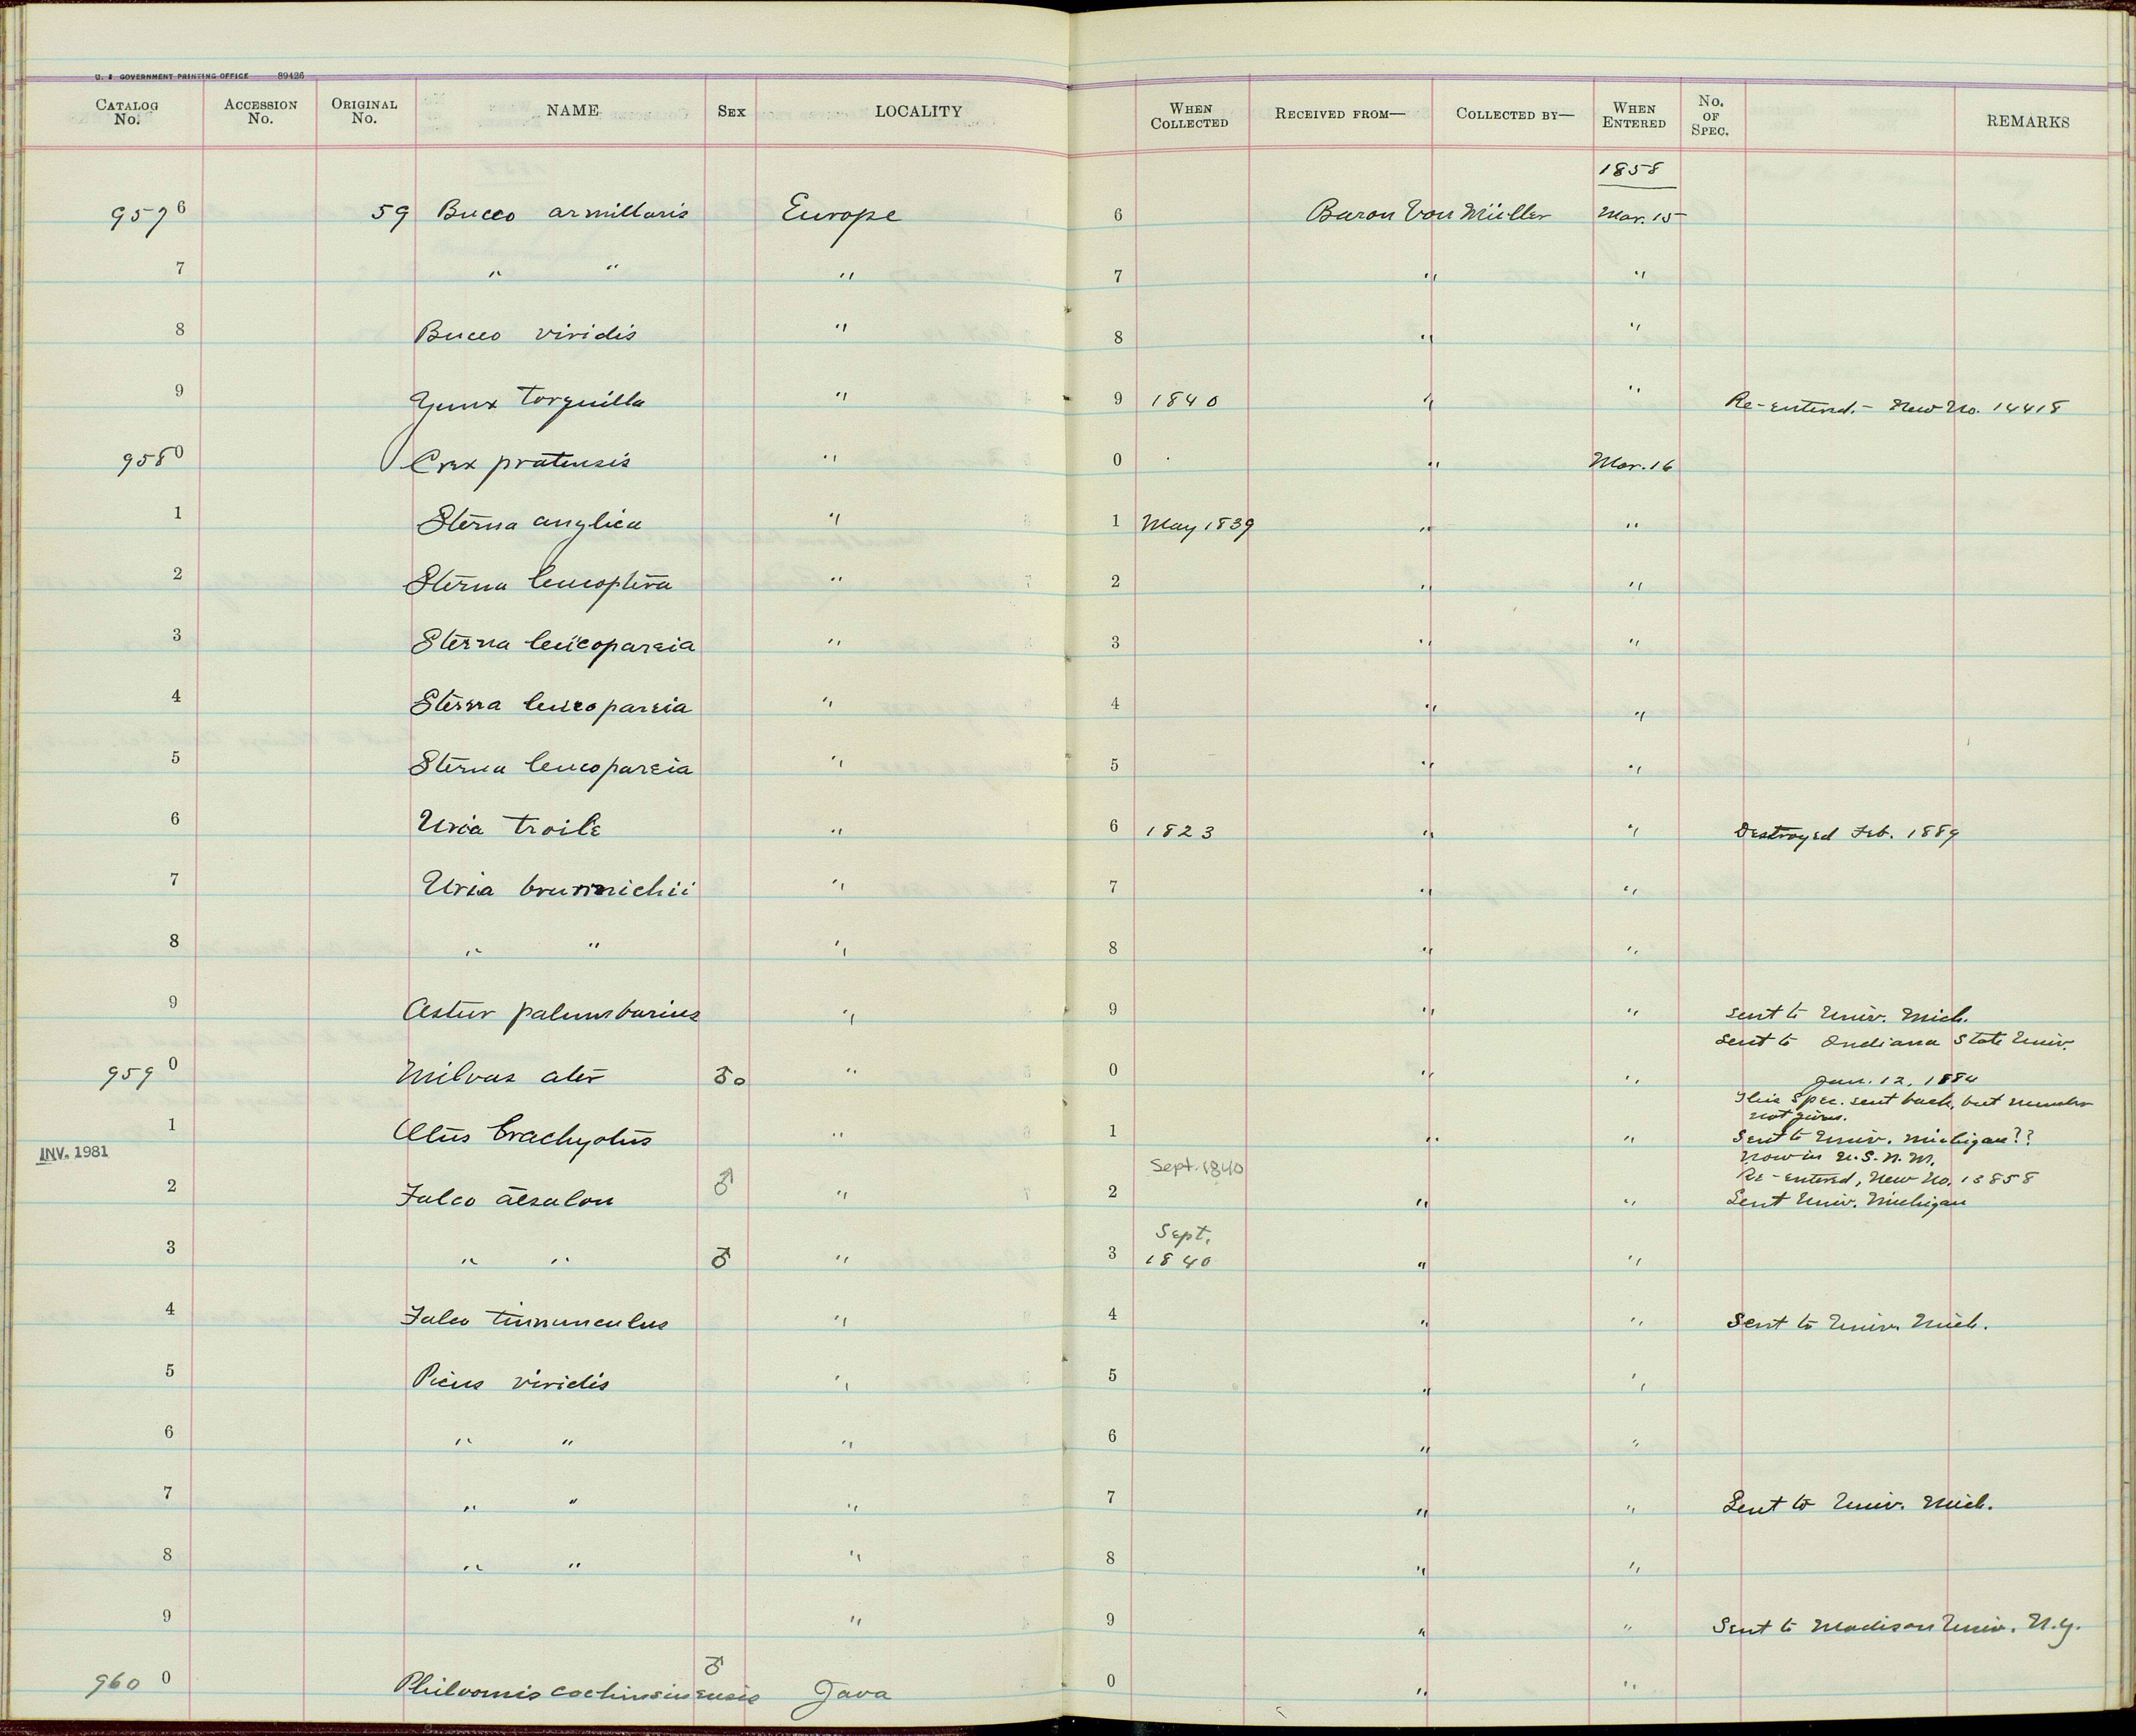 U. S. GOVERNMENT PRINTING OFFICE 89426
CATALOG No. ACCESSION No. ORIGINAL No. NAME SEX LOCALITY WHEN COLLECTED RECEIVED FROM— COLLECTED BY— WHEN ENTERED No. OF SPEC. REMARKS
1858
9576 59 Bucco armillaris Europe 6 Baron Von Müller Mar. 15
7 " " " 7 " "
8 Bucco viridis " 8 " "
9 Yunx Torquilla " 9 1840 " " Re-entered.- New No. 14418
9580 Crex pratensis " 0 " Mar. 16
1 Sterna anglica " 1 May 1839 " "
2 Sterna leucoptera " 2 " "
3 Sterna leucopareia " 3 " "
4 Sterna leucopareia " 4 " "
5 Sterna leucopareia " 5 " "
6 Uria troile " 6 1823 " " Destroyed Feb. 1889
7 Uria brunnichii " 7 " "
8 " " " 8 " "
9 Astur palumbarius " 9 " " Sent to Univ. Mich.
Sent to Indiana State Univ.
9590 Milvus ater ♂o " 0 " " Jan. 12, 1884
This Spec. sent back, but number
not given.
1 Otus brachyotus " 1 " " Sent to Univ. Michigan??
INV. 1981 Now in U.S.N.M.
Sept. 1840 Re-entered, New No. 13858
2 Falco æsalon ♂ " 2 " " Sent Univ. Michigan
Sept.
3 " " ♂ " 3 1840 " "
4 Falco tinnunculus " 4 " " Sent to Univ. Mich.
5 Picus viridis " 5 " "
6 " " " 6 " "
7 " " " 7 " " Sent to Univ. Mich.
8 " " " 8 " "
9 " 9 " " Sent to Madison Univ. N.Y.
9600 Philvornis cochinsinensis ♂ Java 0 " "